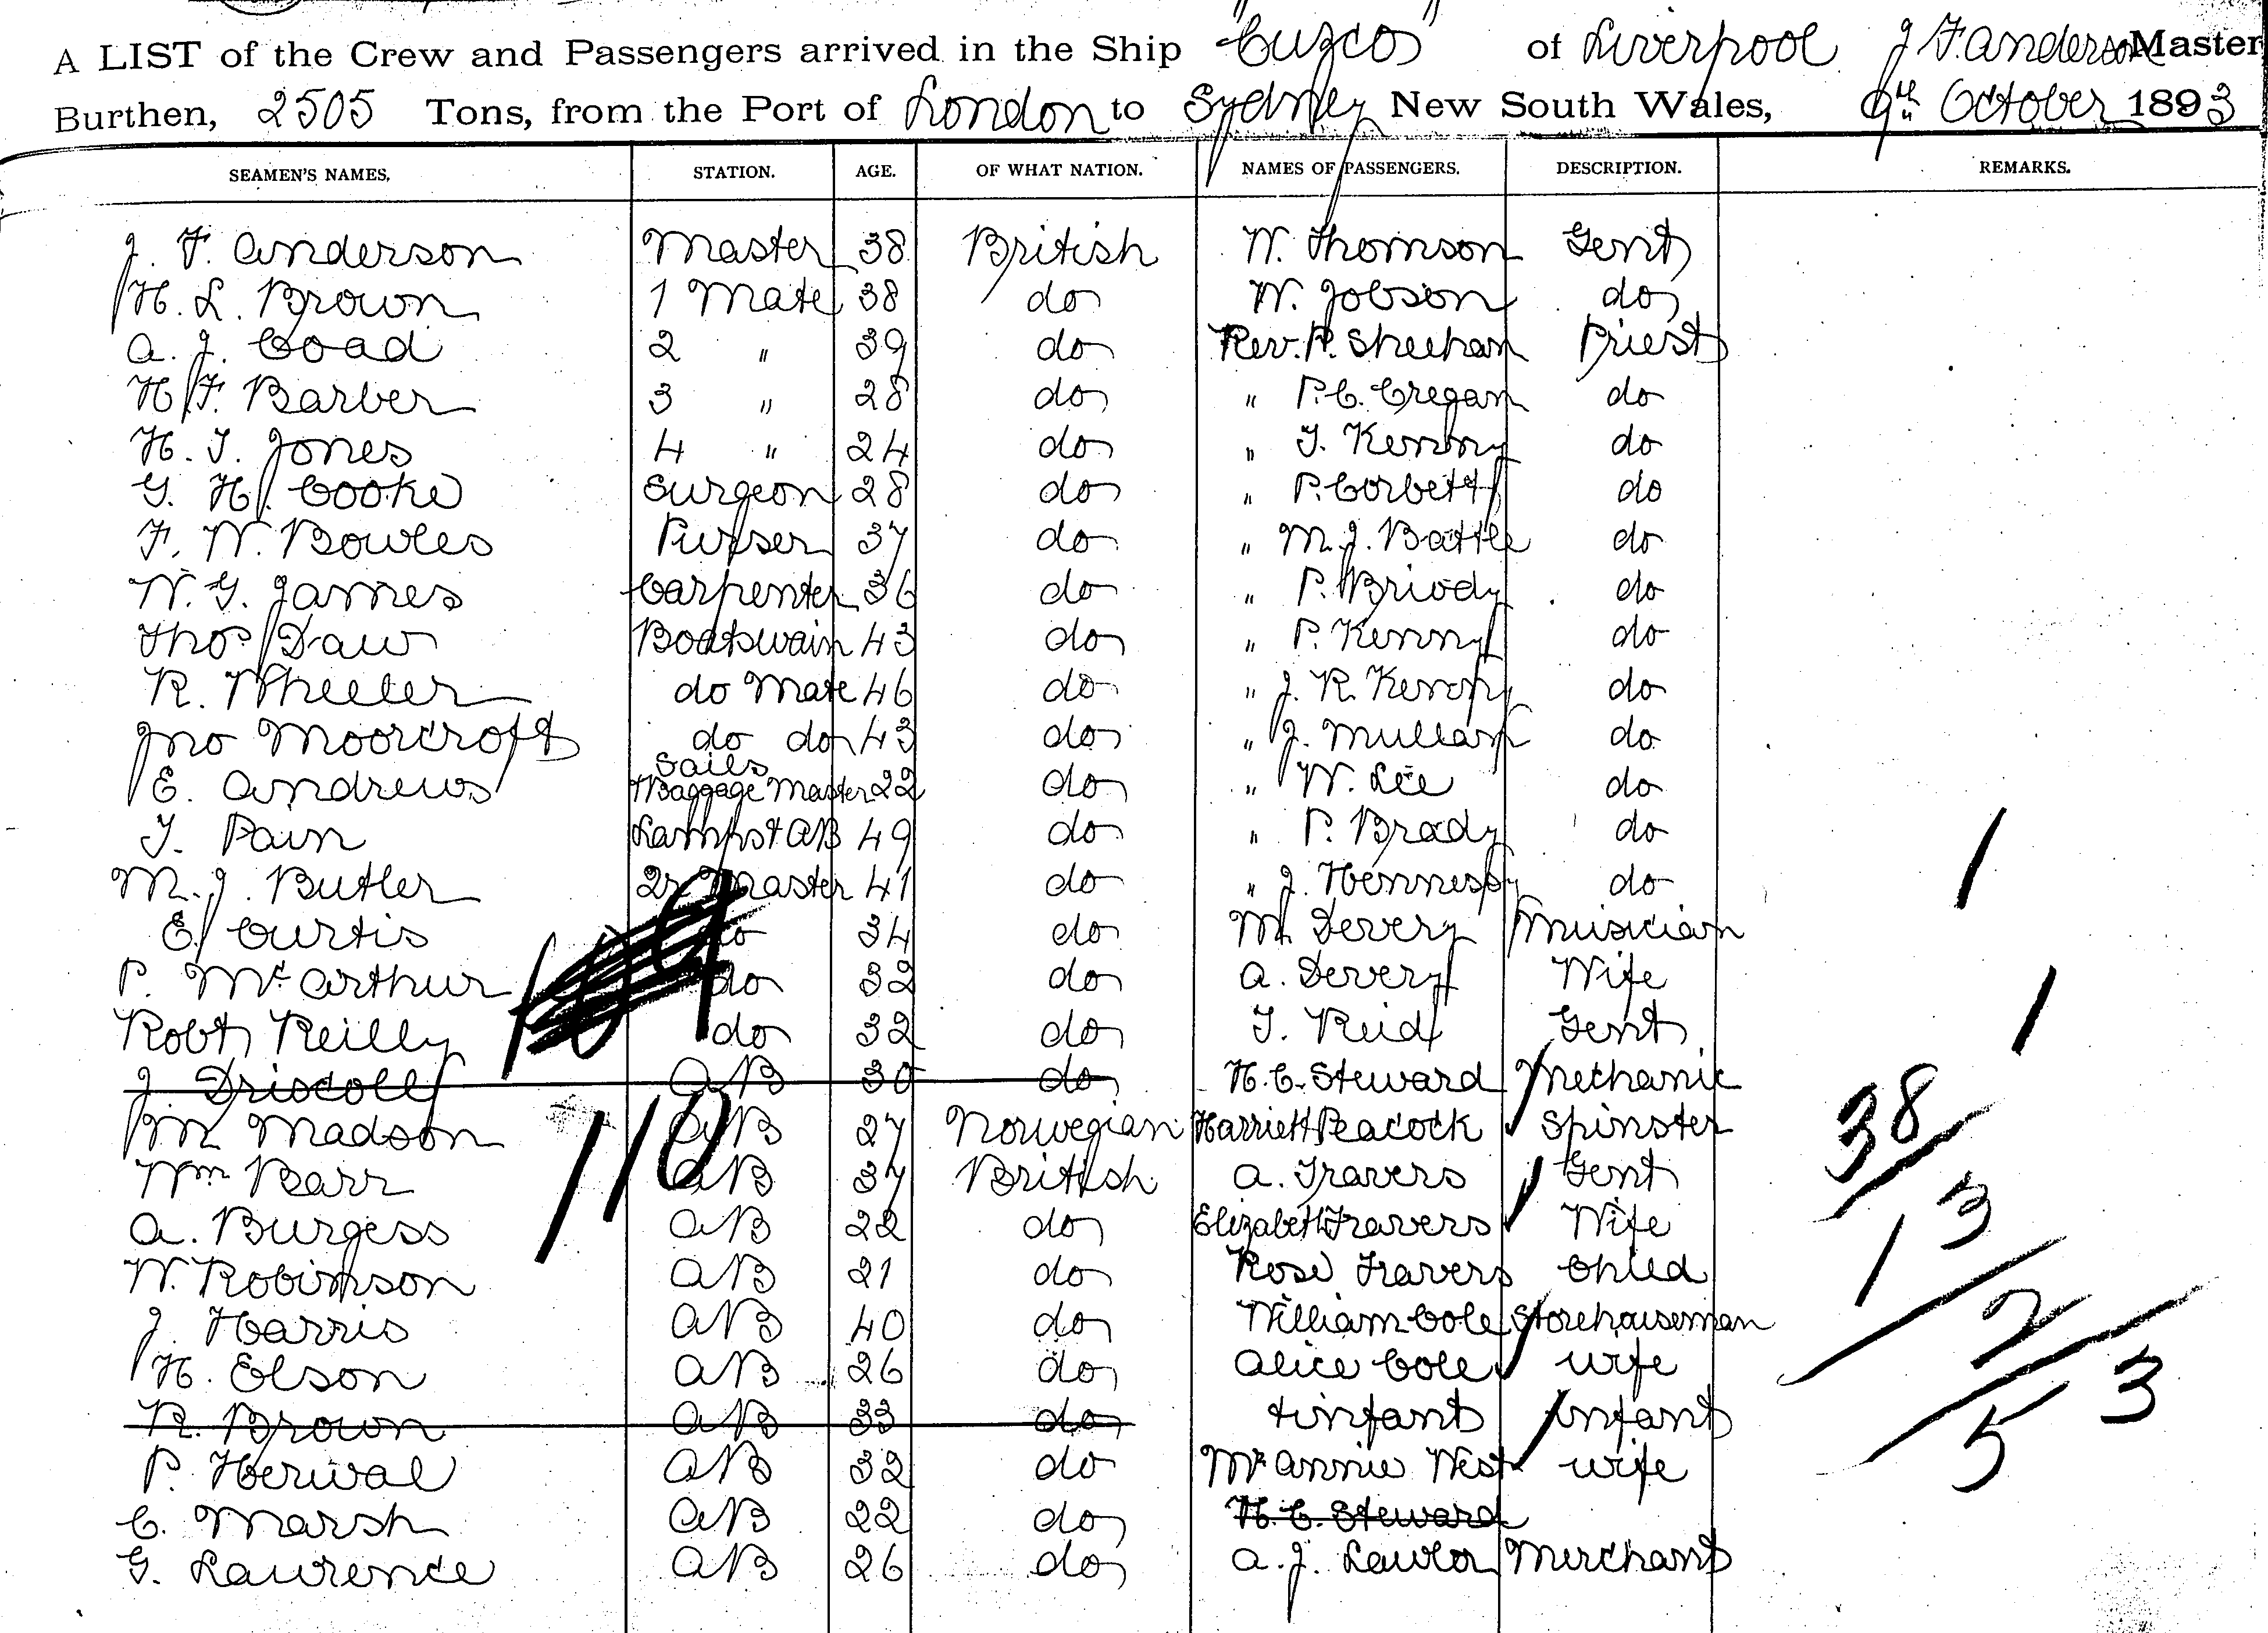 A LIST of the Crew and Passengers arrived in the Ship "Cuzco" of Liverpool J F Anderson Master
Burthen, 2505 Tons, from the Port of London to Sydney New South Wales, 9th October 1893
SEAMEN'S NAMES, STATION. AGE. OF WHAT NATION. NAMES OF PASSENGERS. DESCRIPTION. REMARKS.
J. F. Anderson Master 38 British W. Thomson Gent
H. L. Brown 1 Mate 38 do W. Jobson do
A. J. Coad 2 " 39 do Rev. P. Sheehan Priest
H. F. Barber 3 " 28 do " P. C. Cregan do
H. T. Jones 4 " 24 do " T. Kenny do
G. H. Cooke Surgeon 28 do " P. Corbett do
F. W. Bowles Purser 37 do " M. J. Battle do
W. G. James Carpenter 36 do " P. Briody do
Thos Daw Boatswain 43 do " P. Kenny do
R. Wheeler do Mate 46 do " J. R. Kenny do
Jno Moorcroft do do 43 do " J. Mullany do
E. Andrews Sails Baggage Master 22 do " W. Lee do
T. Pain Lampst AB 49 do " P. Brady do
M. J. Butler Qr Master 41 do " J. Hennessy do 1
E. Curtis do 34 do M. Devery Musician
P. McArthur do 32 do A. Devery Wife
Robt Reilly do 32 do T. Reid Gent 1
J. Driscoll AB 30 do H. C. Steward Mechanic
M Madson AB 27 Norwegian Harriett Peacock Spinster 38
110
Wm Barr AB 37 British A. Travers Gent
A. Burgess AB 22 do Elizabeth Travers Wife 13
W. Robinson AB 21 do Rose Travers Child
J. Harris AB 40 do William Cole Storehouseman 2
H. Elson AB 26 do Alice Cole wife
R. Brown AB 33 do + infant infant 53
P. Herival AB 32 do Mrs Annie West wife
C. Marsh AB 22 do H. C. Steward
G. Lawrence AB 26 do A. J. Lawlor Merchant